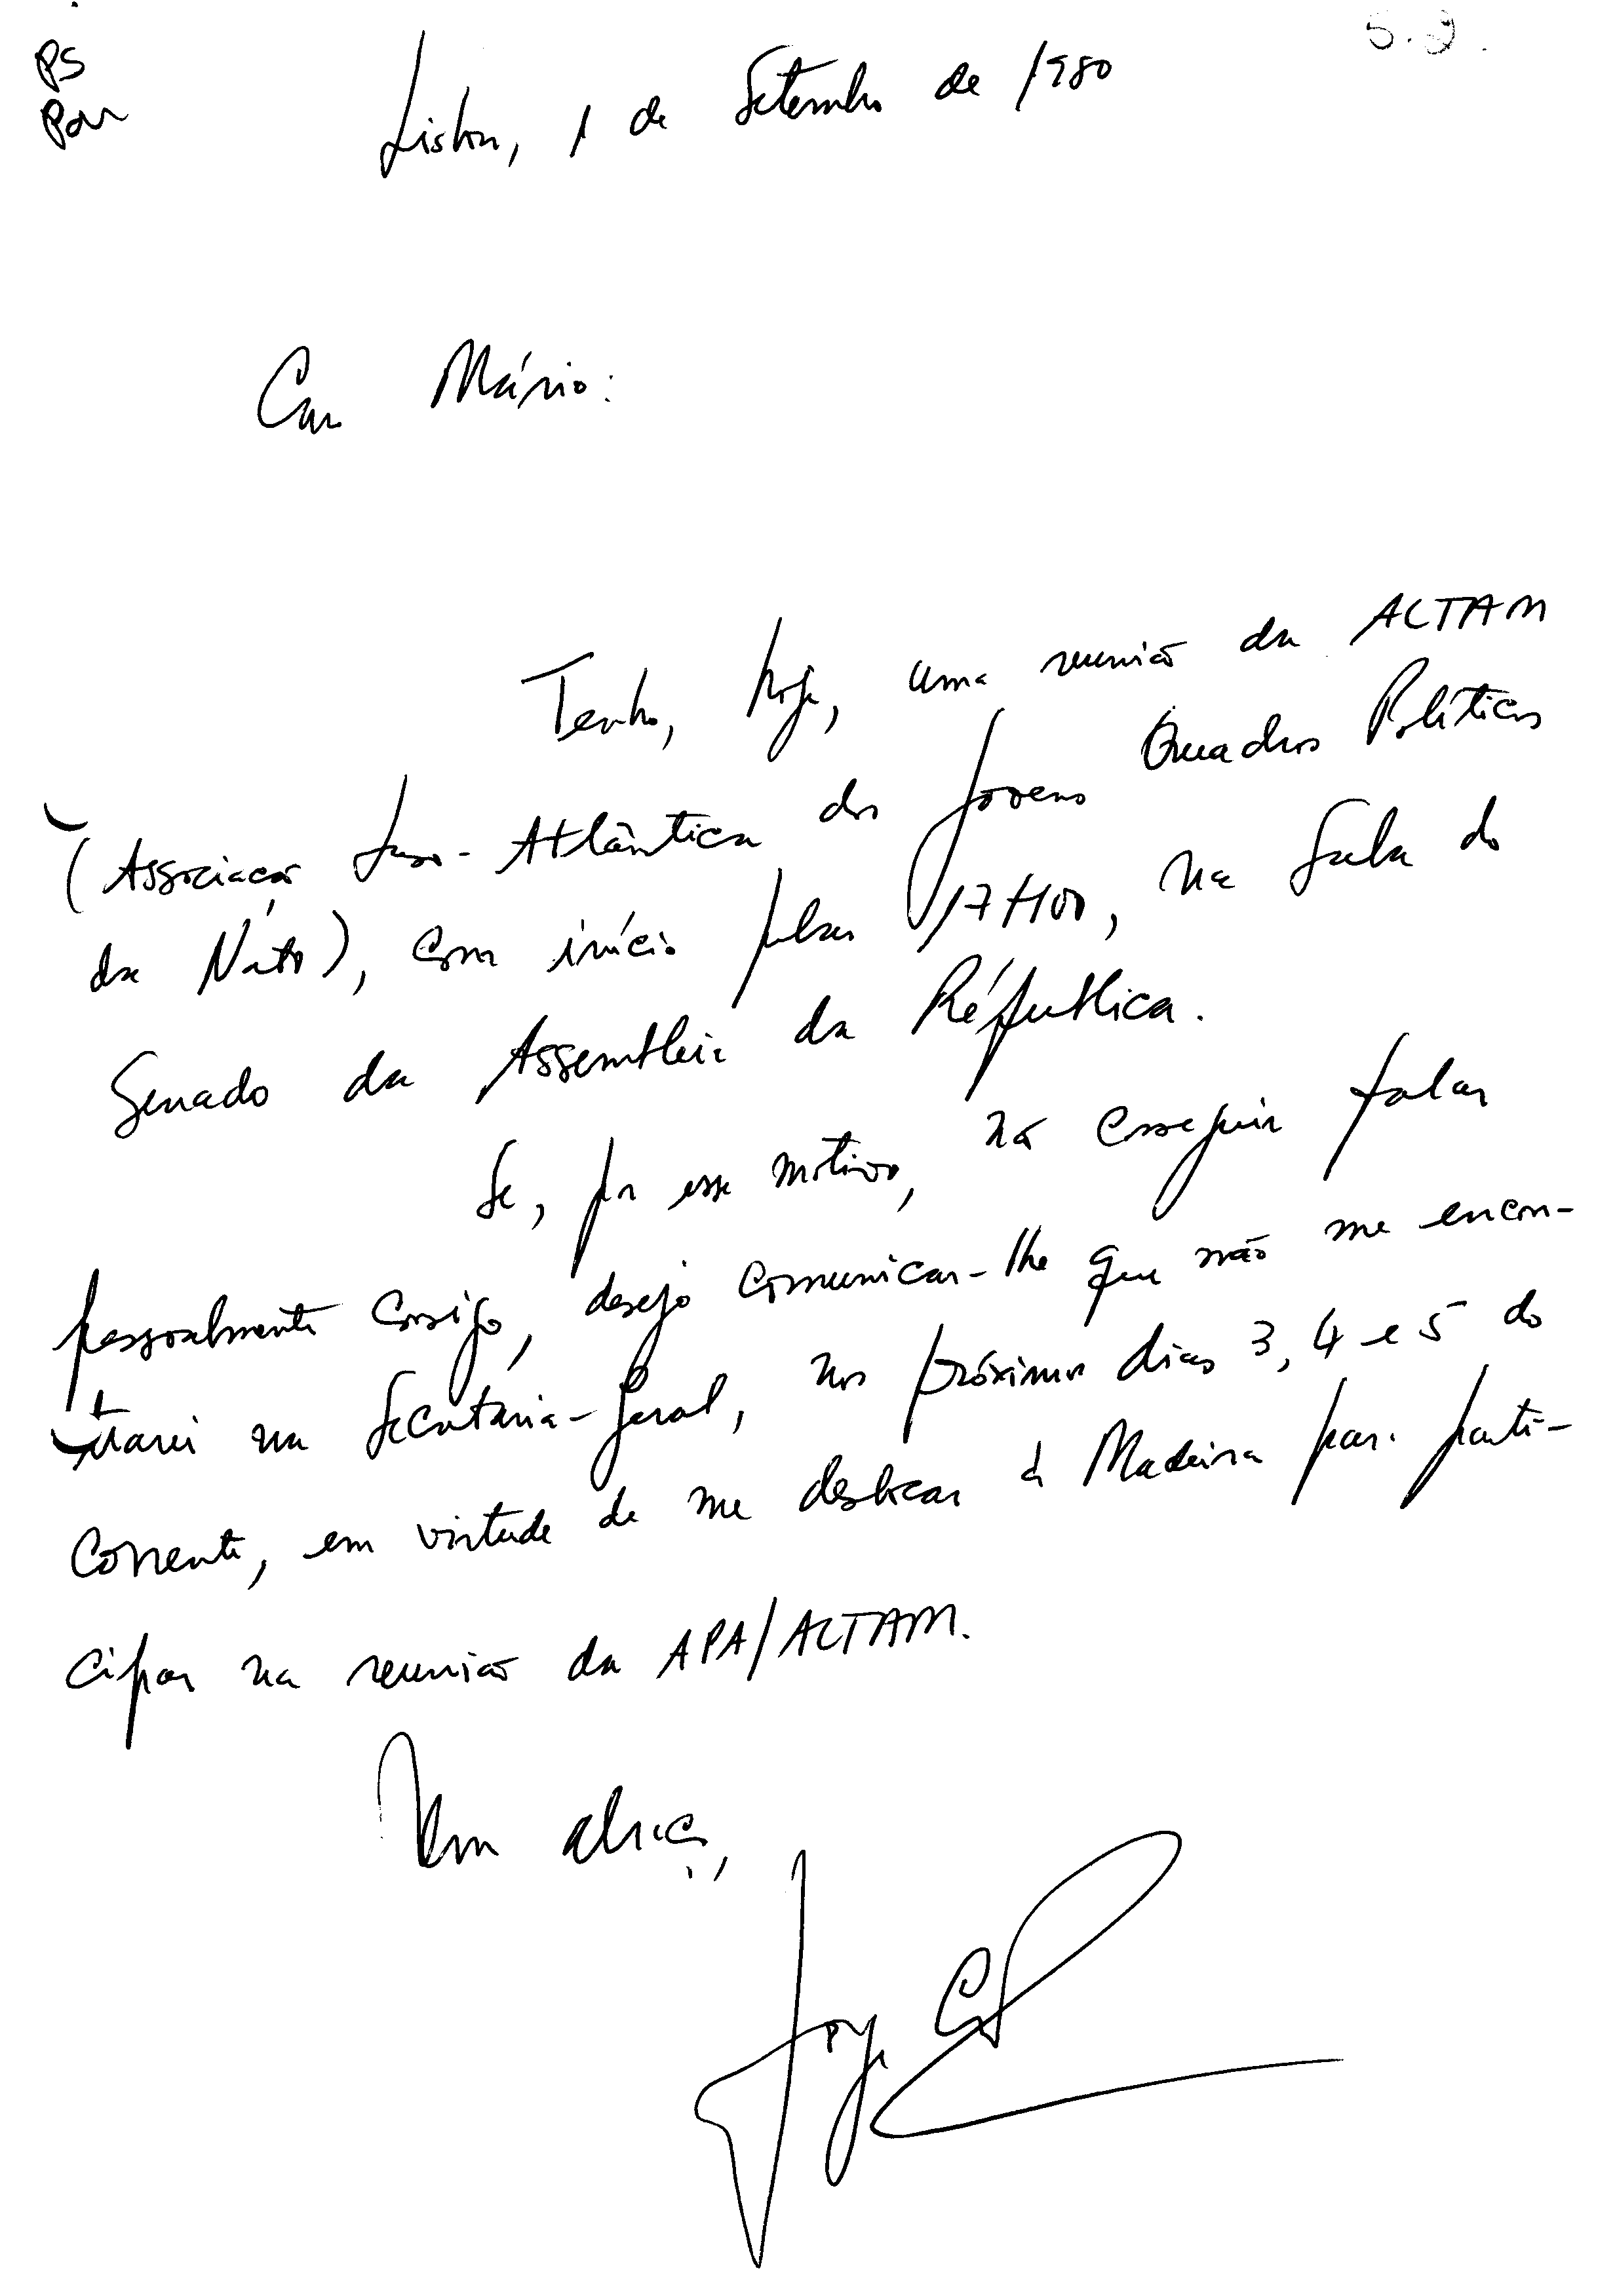 5.9.
PS
Lisboa, 1 de Setembro de 1980
Caro Mário:
Tenho, hoje, uma reunião da ACTAM
(Associação Luso-Atlântica dos Jovens Quadros Políticos
da Nato), com início pelas 17H00, na Sala do
Senado da Assembleia da Répública.
Se, por esse motivo, não conseguir falar
pessoalmente consigo, desejo comunicar-lhe que não me encon-
trarei na Secretaria-Geral, nos próximos dias 3, 4 e 5 do
corrente, em virtude de me deslocar à Madeira para parti-
cipar na reunião da APA/ACTAM.
Um abraço,
Jorge